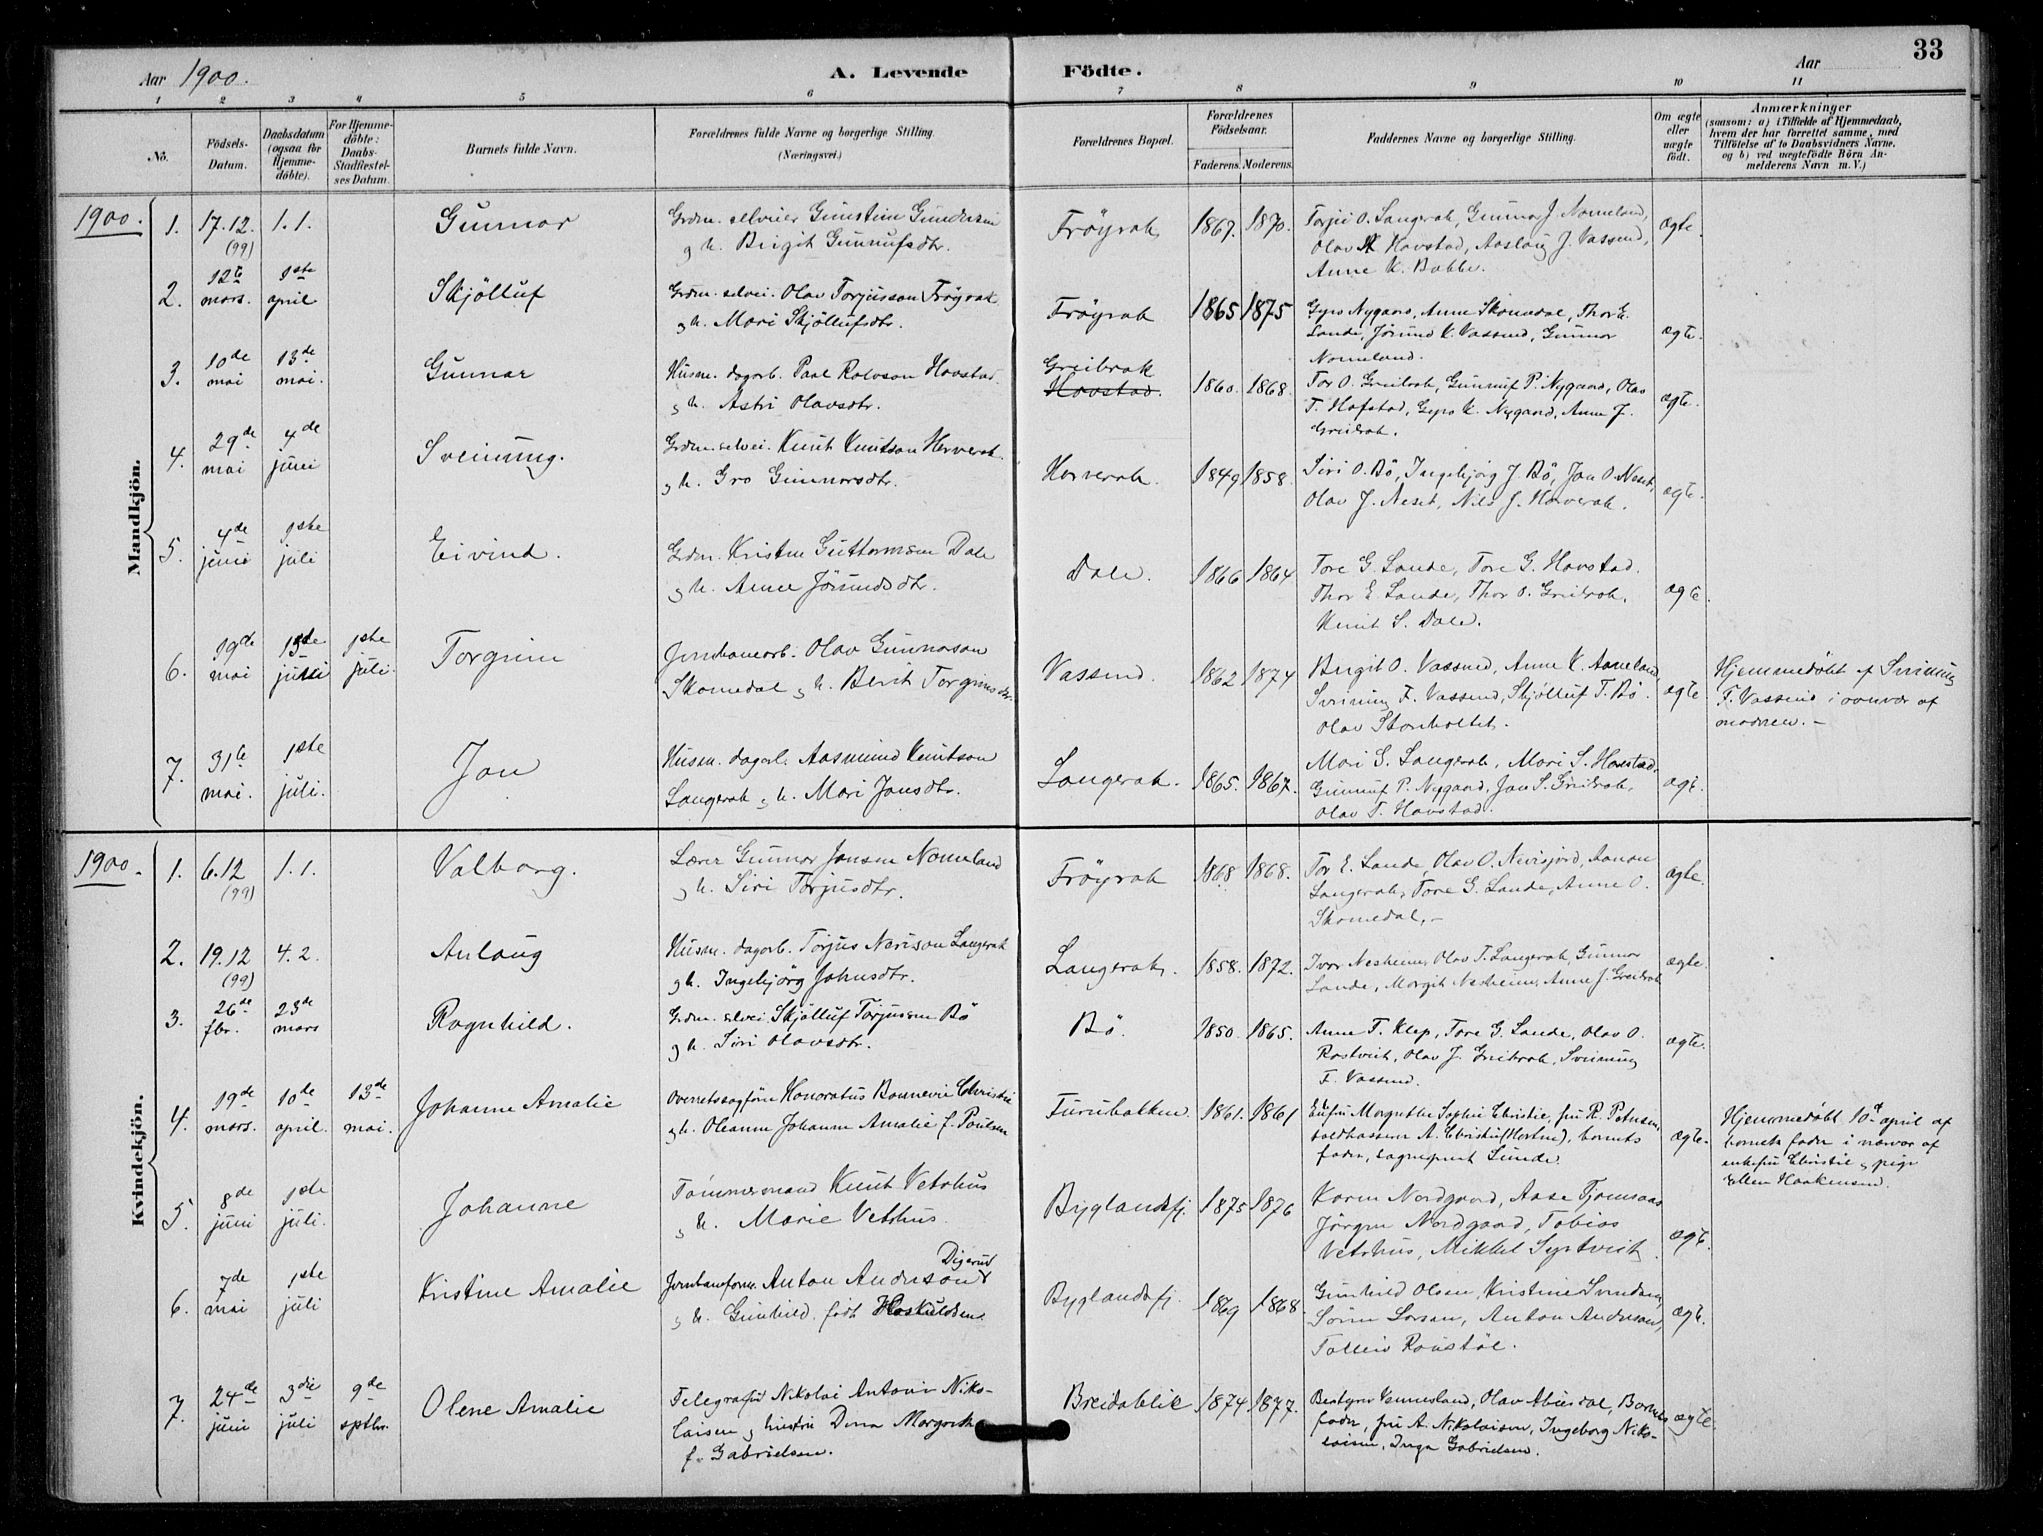 33
Aar 1900.
A. Levende Födte.
Aar
1 2 3 4 5 6 7 8 9 10 11
Nö.
Födsels-Datum.
Daabsdatum (ogsaa for Hjemme-döbte).
For Hjemme-döbte: Daabs-Stadfæstel-ses Datum.
Barnets fulde Navn.
Forældrenes fulde Navne og borgerlige Stilling. (Næringsvei.)
Forældrenes Bopæl.
Forældrenes Födselsaar.
Faderens. Moderens.
Faddernes Navne og borgerlige Stilling.
Om ægte eller uægte födt.
Anmærkninger
(saasom: a) i Tilfælde af Hjemmedaab, hvem der har forrettet samme, med Tilföielse af to Daabsvidners Navne, og b) ved uægtefödte Börn An-melderens Navn m. V.)
Mandkjön.
1900. 1. 17.12. (99) 1.1. Gunnar
Grdm. selveier Gunstein Gundersen
og h. Birgit Gunnufsdtr.
Fröyrak 1867. 1870.
Torjus O. Langerak, Gunnar J. Nomeland,
Olav Hovstad, Aaslaug J. Vassend,
Anne K. Bakke.
ægte.
2. 12te mars. 1ste april Skjölluf
Grdm. selvei. Olav Torjusson Fröyrak
og h. Mari Skjöllufsdtr.
Fröyrak 1865 1875
Gyro Nygaard, Anne Skomedal, Thor E.
Lande, Jörund K. Vassend, Gunnar
Nomeland.
ægte.
3. 10de mai 13de mai. Gunnar
Husm. dagarb. Paal Rolvson Hovstad.
og h. Astri Olavsdtr.
Greibrak
Hovstad. 1860. 1868.
Tor O. Greibrok, Gunnuf P. Nygaard, Olav
T. Hofstad, Gyro K. Nygaard, Anne J.
Greibrok.
ægte.
4. 29de mai 4de juni Sveinung.
Grdm. selvei. Knut Knutson Horverak.
og h. Gro Gunnarsdtr.
Horverak. 1849 1858.
Siri O. Bö, Ingebjörg J. Bö, Jon O. Neset,
Olav J. Neset, Nils J. Horverak.
ægte.
5. 4de juni 1ste juli Eivind.
Grdm. Kristen Guttormsen Dale
og h. Anne Jörundsdtr.
Dale. 1866 1864
Tore G. Lande, Tore G. Hovstad.
Thor E. Lande, Thor O. Greibrok.
Knut S. Dale.
ægte.
6. 19de mai juli 1ste juli. Torgrim
Jernbanearb. Olav Gunnarson
Skomedal og h. Berit Torgrimsdtr.
Vassend. 1862 1874
Birgit O. Vassend, Anne K. Aaneland
Sveinung F. Vassend, Skjölluf T. Bö.
Olav Storholtet.
ægte
Hjemmedøbt af Sveinung
F. Vassend i nærvær af
moderen. –
7. 31te mai. 1ste juli. Jon
Husm. dagarb. Aasmund Knutson
Langerak og h. Mari Jonsdtr.
Langerak. 1865. 1867.
Mari G. Langerak, Mari S. Hovstad,
Gunnuf P. Nygaard, Jon S. Greibrok,
Olav T. Hovstad.
ægt.
Kvindekjön.
1900. 1. 6.12 (99) 1.1. Valborg.
Lærer Gunnar Jonsen Nomeland
og h. Siri Torjusdtr.
Fröyrak 1868 1868.
Tor E. Lande, Olav O. Nevisjord, Aanon
Langerak, Tore G. Lande, Anne O.
Skomedal. –
ægte.
2. 19.12 (99) 4.2. Anlaug
Husm. dagarb. Torjus Nerison Langerak
og h. Ingebjörg Johnsdtr.
Langerak. 1858. 1872.
Ivar Nesheim, Olav T. Langerak, Gunnar
Lande, Margit Nesheim, Anne J. Greibrok
ægte.
3. 26de fbr. 23de mars Ragnhild.
Grdm. selvei. Skjölluf Torjussen Bö
og h. Siri Olavsdtr.
Bö. 1850. 1865.
Anne T. Klep, Tore G. Lande, Olav O.
Rostveit, Olav J. Greibrok, Sveinung
F. Vassend.
ægte.
4. 19de mars. 10de april. 13de mai. Johanne Amalie
Overretssagförer Honoratus Bonnevie Christie
og h. Oleanne Johanne Amalie f. Poulsen
Furubakken 1861. 1861
Enkefru Margrethe Sophie Christie, fru R. Petersen,
toldkasserer A. Christie (Horten), barnets
fader, sagnepræst Lunde.
ægte.
Hjemmedøbt 10de april af
barnets fader i nærvær af
enkefru Christie og pige
Ellen Haakensen.
5. 8de juni 1ste juli. Johanne
Tömmermand Knut Vetrhus
og h. Marie Vetrhus.
Byglandsfj. 1875 1876
Karen Nordgaard, Aase Tjomsaas
Jörgen Nordgaard, Tobias
Vetrhus, Mikkel Syrtveit.
ægte.
6. 7de mai 1ste juli Kristine Amalie
Digerud
Jernbaneform. Anton Anderson
og h. Gunhild född Hoskuldsen.
Byglandsfj. 1869 1868.
Gunhild Olsen, Kristine Svendsen,
Sören Larsen, Anton Anderson,
Tollein Roustöl.
ægte.
7. 24de juni 3die juli 9de septbr. Olene Amalie
Telegrafist Nikolai Antoni Niko-
laisen og hustru Dina Margrethe
f. Gabrielsen.
Breidablik 1874 1877.
Bestyrer Vennesland, Olav Abusdal, Barnets
fader, fru A. Nikolaisen, Ingeborg Niko-
laisen, Inga Gabrielsen.
ægte.